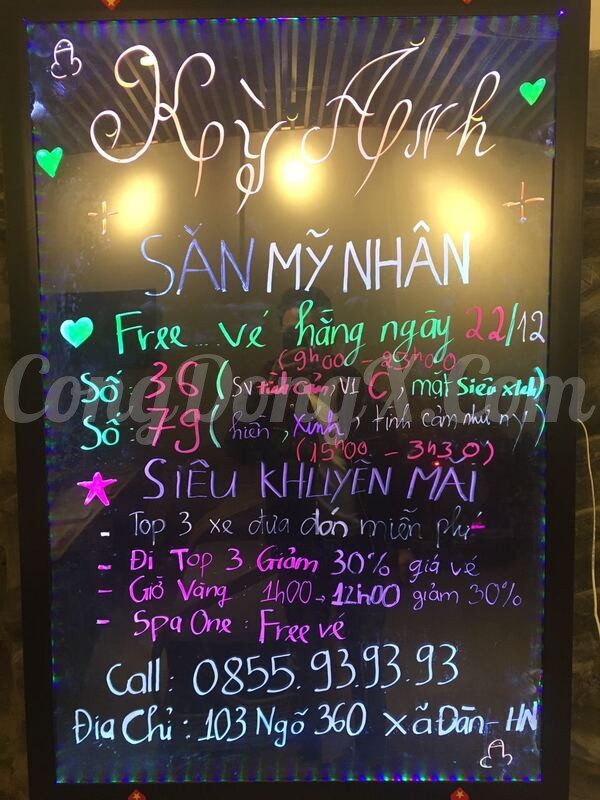 Kỳ Anh
SĂN MỸ NHÂN
Free .... vé hằng ngày 22/12
(9h00 - 23h00
Số : 36 ( SV tình cảm, V1 C, mặt Siêu xinh)
Số : 79 ( hiền, xinh, tình cảm như ny)
(15h00 - 3h30)
SIÊU KHUYẾN MÃI
- Top 3 xe đưa đón miễn phí
- Đi Top 3 Giảm 30% giá vé
- Giờ Vàng : 1h00 → 12h00 giảm 30%
- Spa One : Free vé
Call : 0855.9393.93
Địa Chỉ : 103 Ngõ 360 Xã Đàn - HN
CongDongX.Com